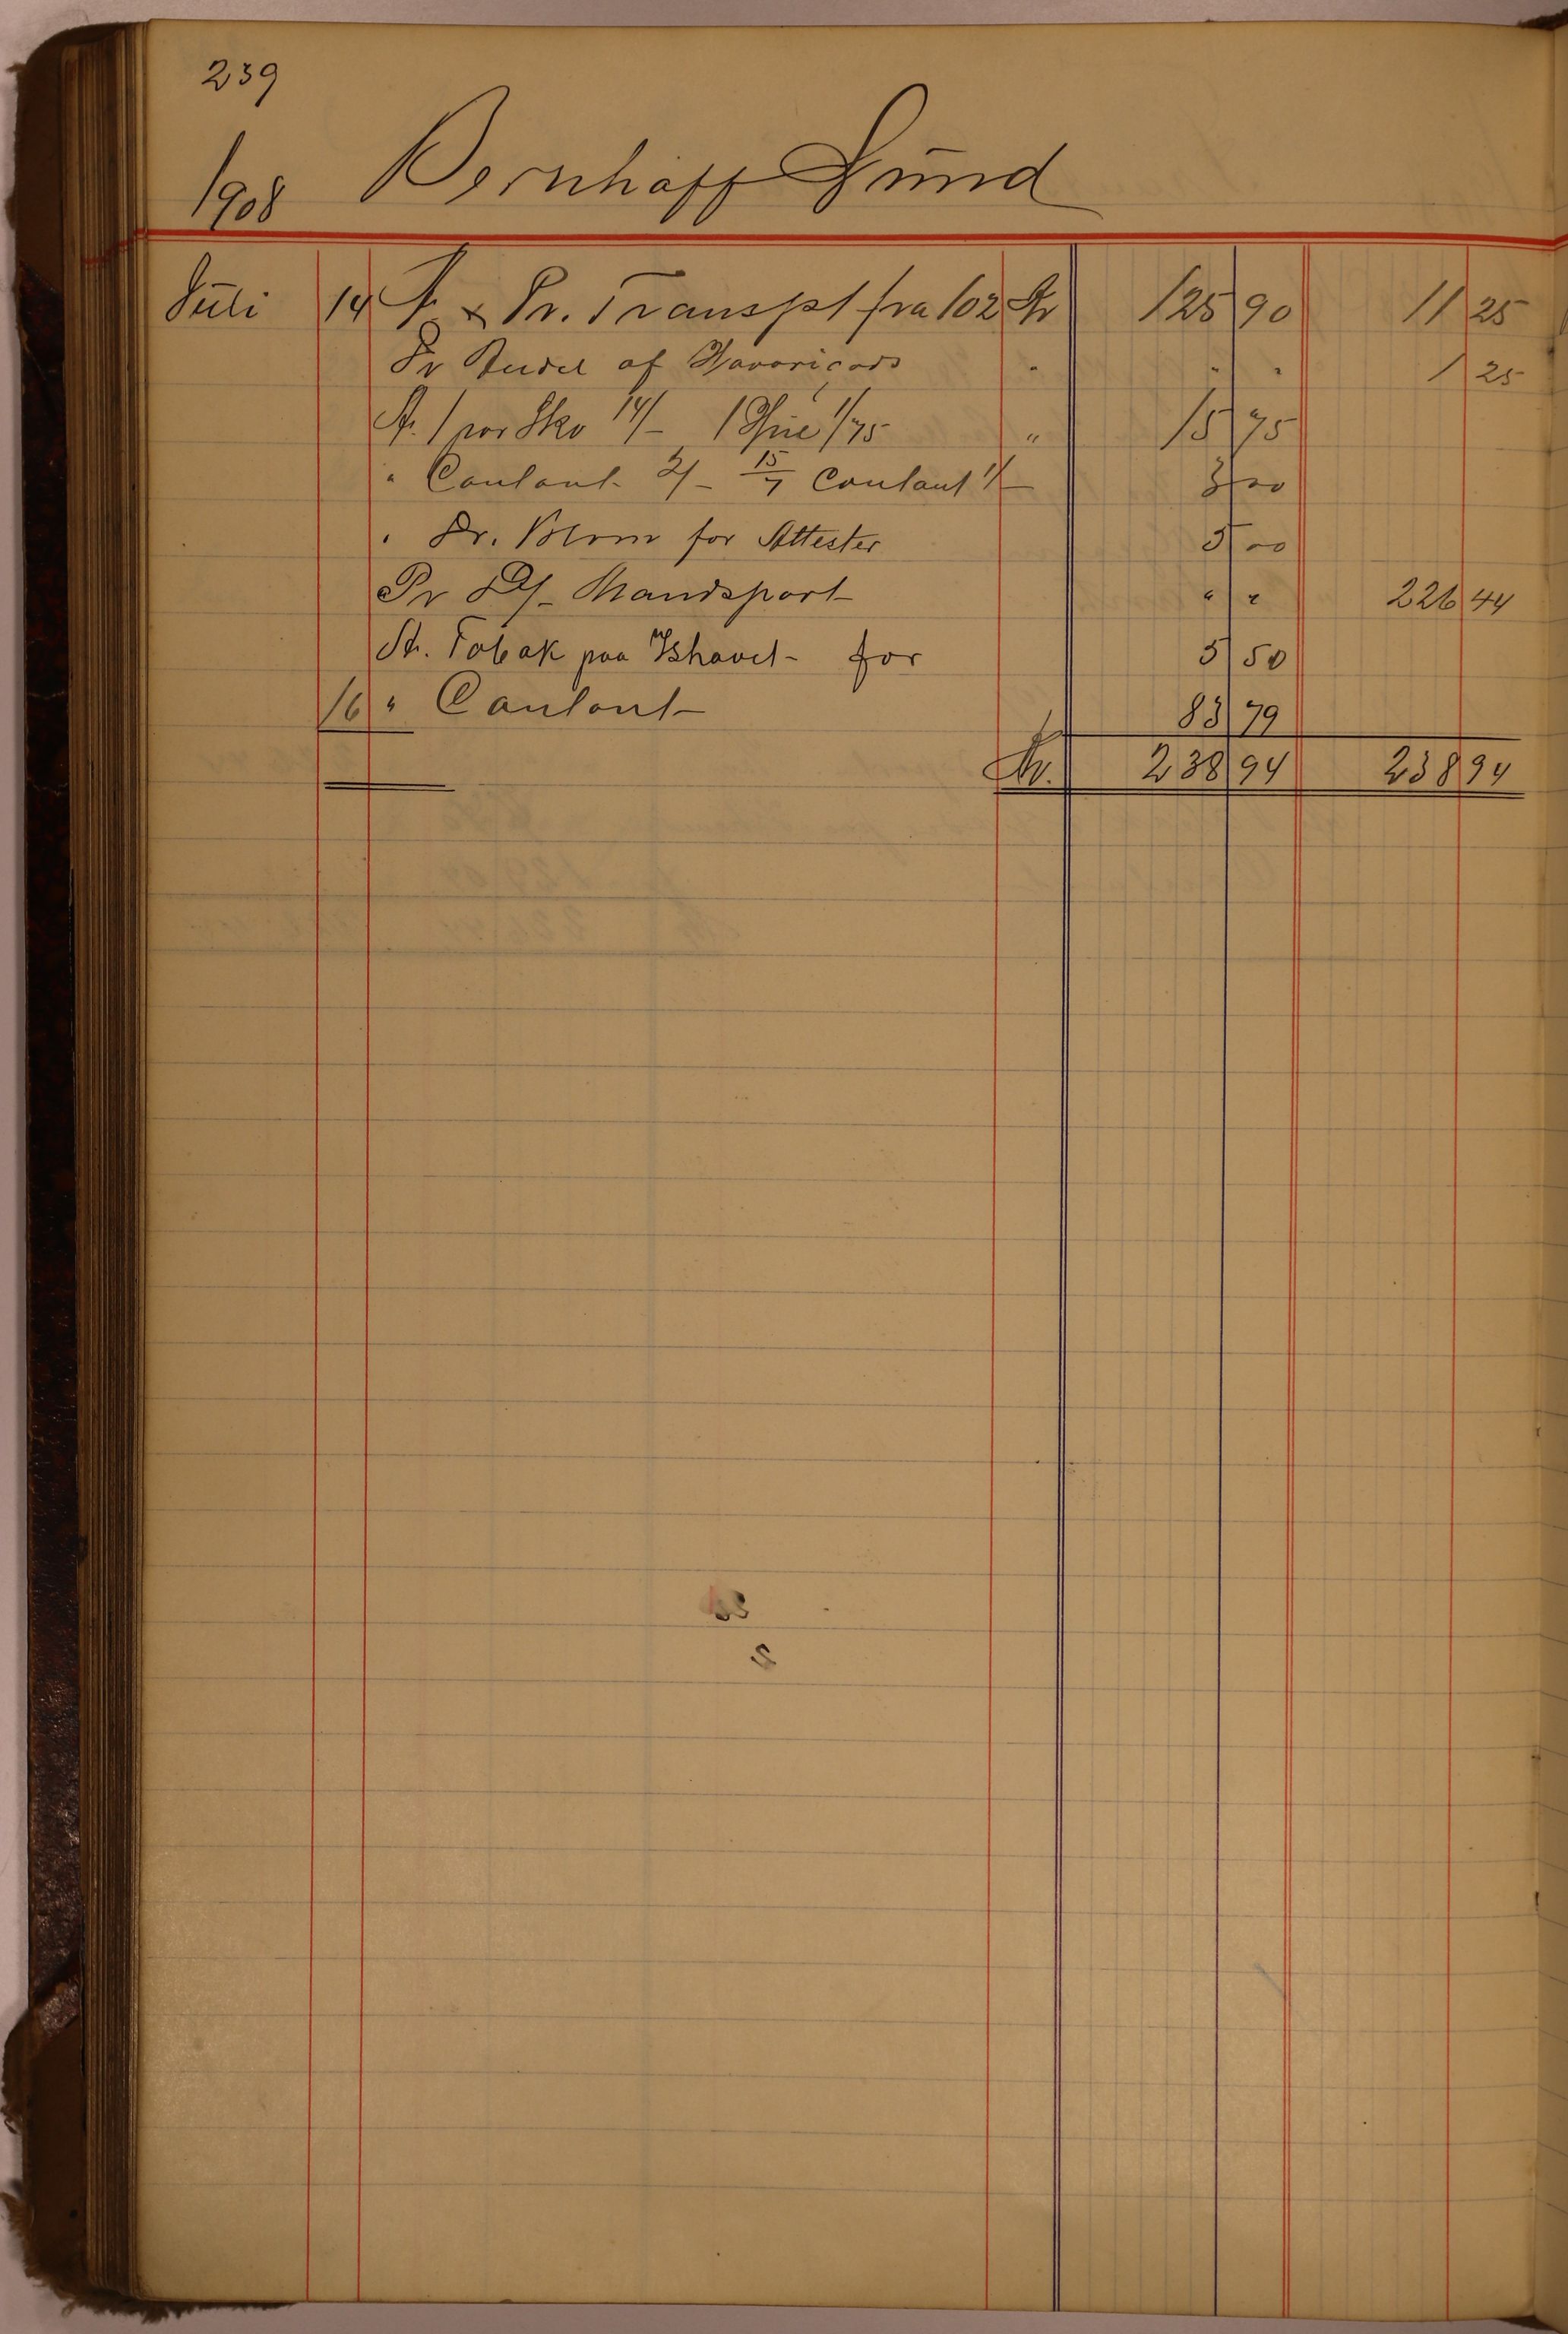 239
1908 Bernhoff Lund
Juli 14 At. & Pr. Transpt fra 102 Kr 125 90 11 25
Pr Andel af Havarigods " " " 1 25
At. 1 par Sko 14/- 1 Hue 1/75 " 15 75
" Contant 2/- 15/7 Contant 1/- 3 00
" Dr. Blom for Attester 5 00
Pr D/- Mandspart " " 226 44
At. Tobak paa Ishavet for 5 50
16 " Contant 83 79
Kr. 238 94 238 94